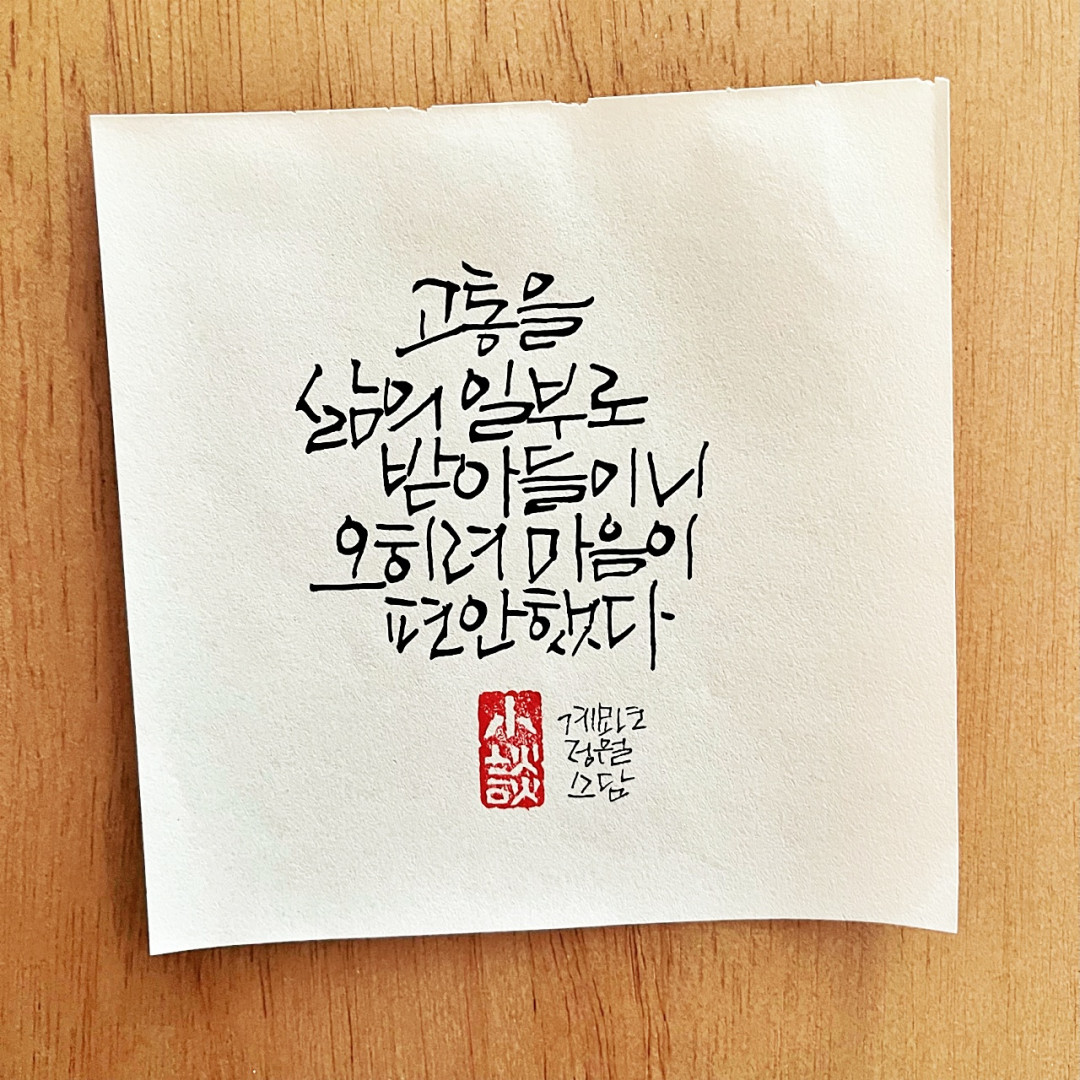 고통을
삶의 일부로
받아들이니
오히려 마음이
편안했다
小談
계묘년
정월
소담